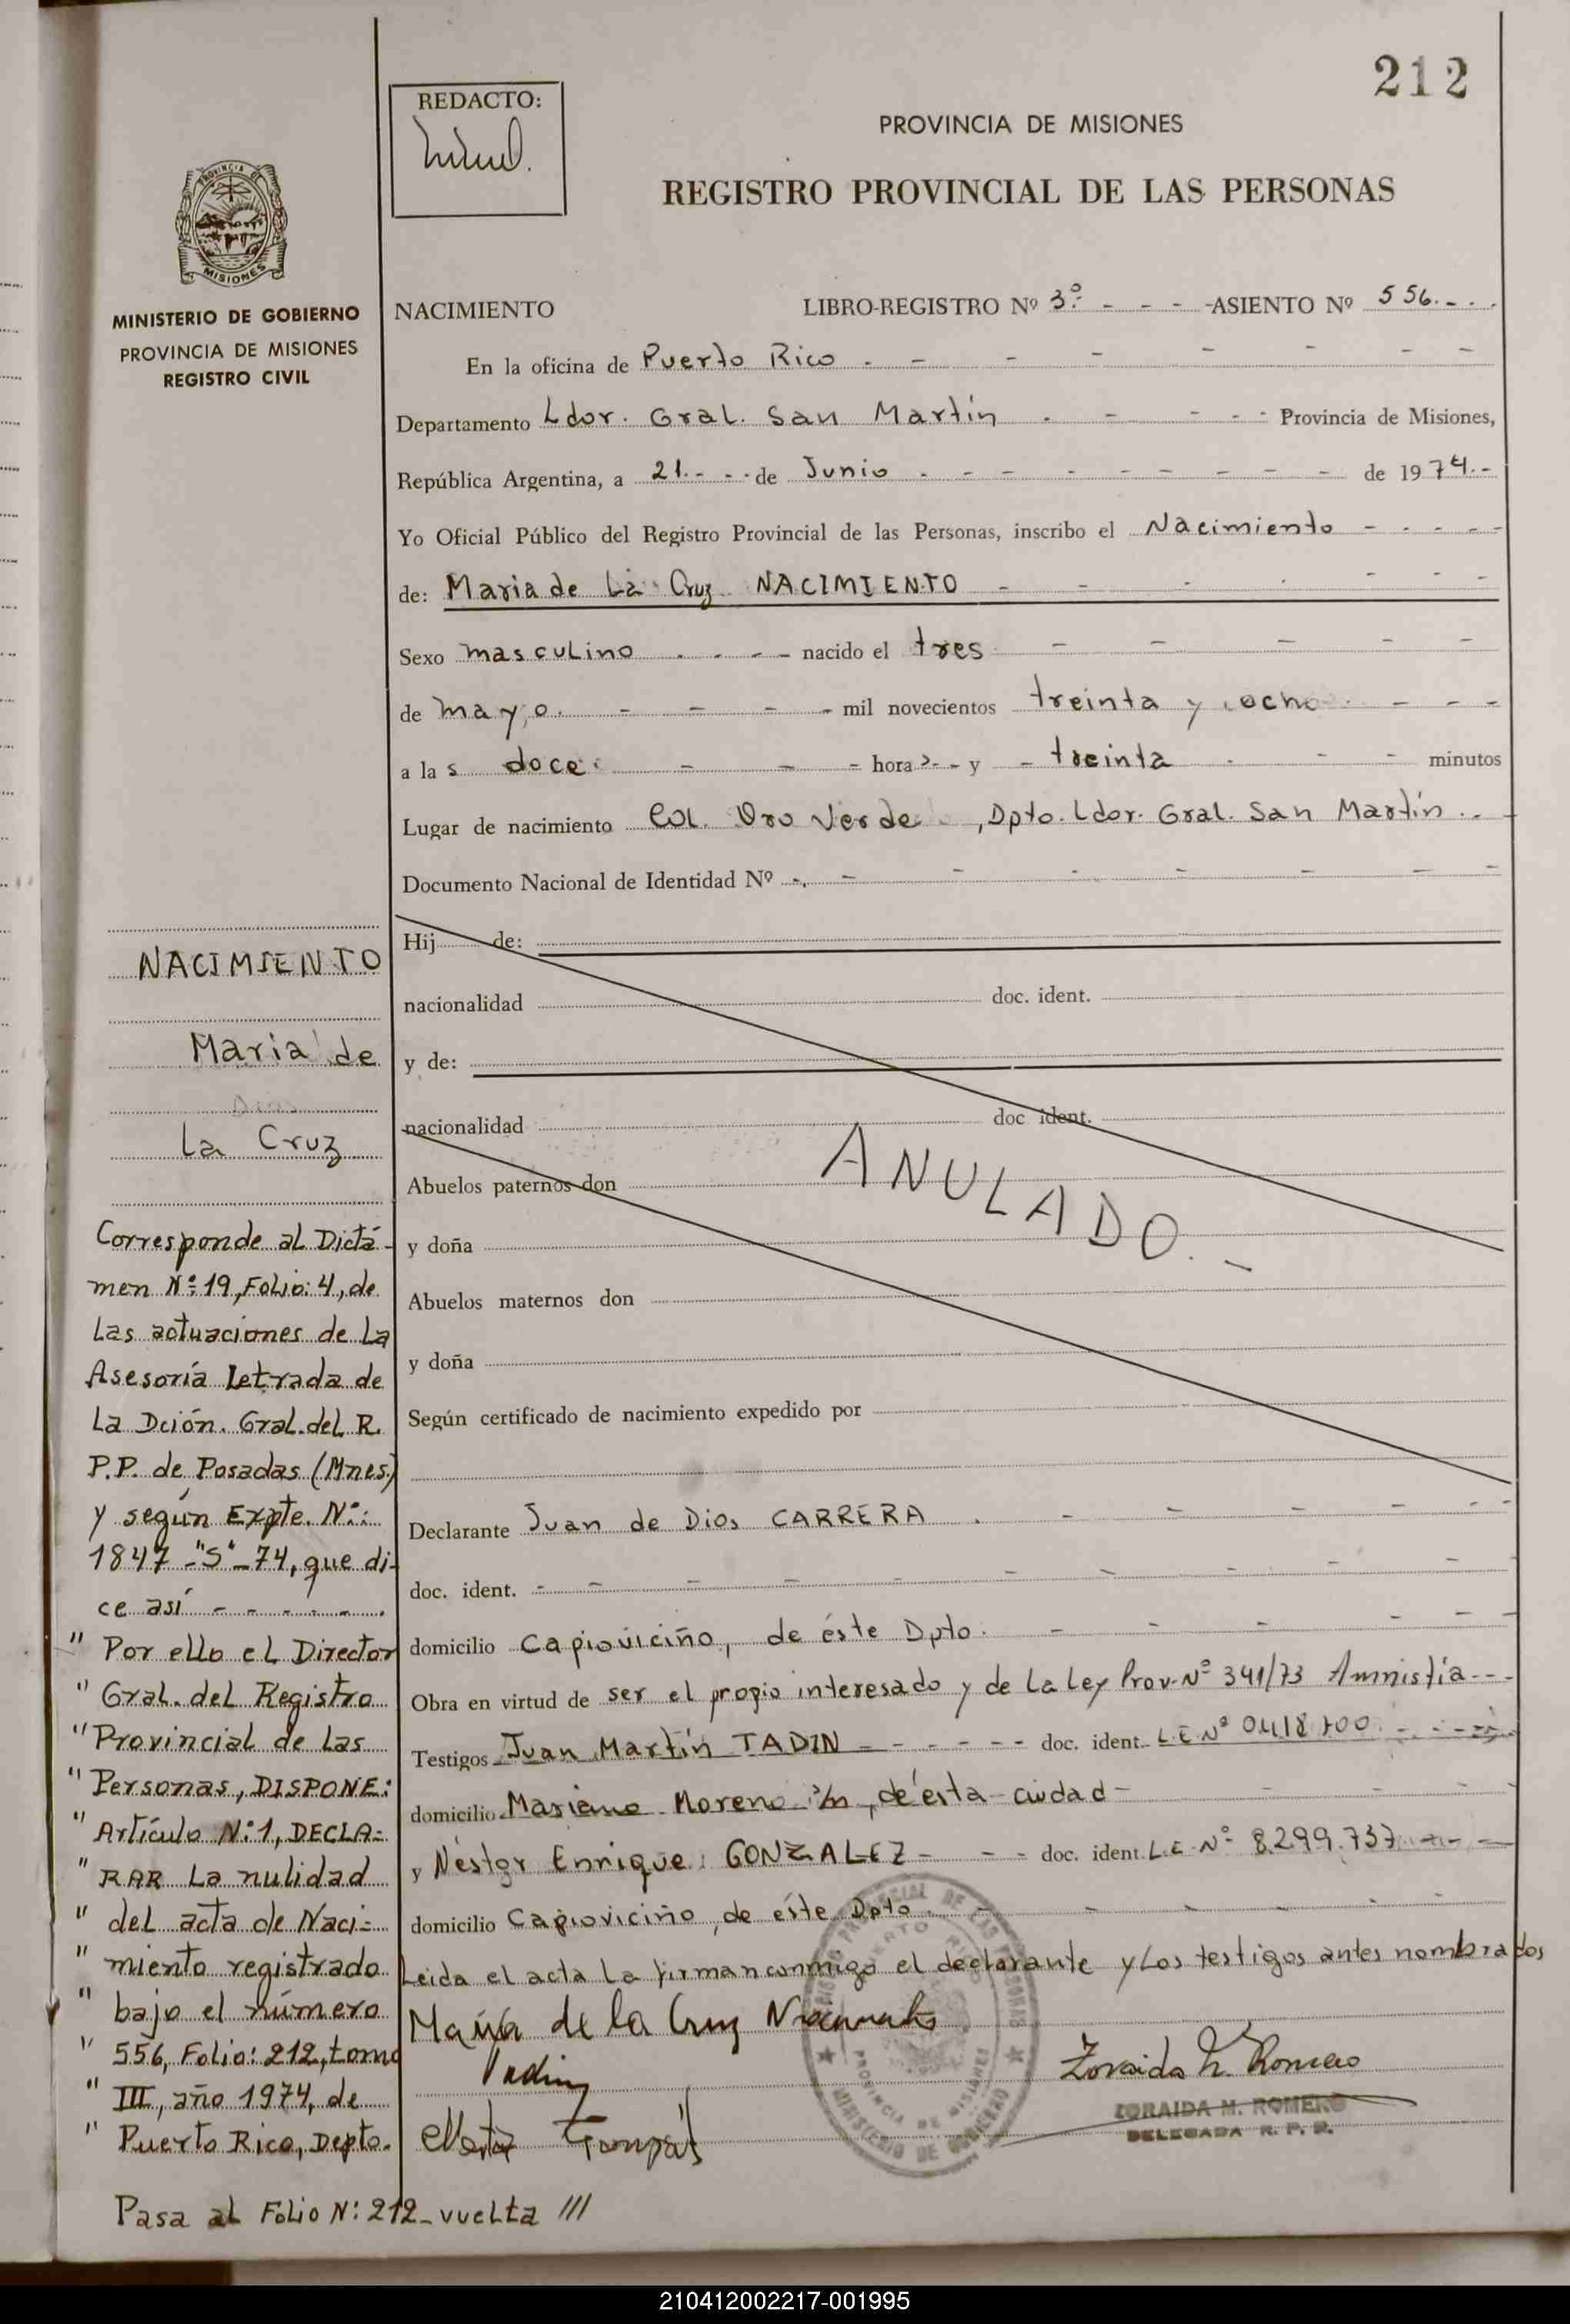 212
REDACTO:
PROVINCIA DE MISIONES
REGISTRO PROVINCIAL DE LAS PERSONAS
PROVINCIA DE
MISIONES
MINISTERIO DE GOBIERNO
PROVINCIA DE MISIONES
REGISTRO CIVIL
NACIMIENTO LIBRO-REGISTRO Nº 3º.- - - - -ASIENTO Nº 556.- - .
En la oficina de Puerto Rico . - - - - - - -
Departamento Ldor. Gral. San Martín . - - - - Provincia de Misiones,
República Argentina, a 21.- - . de Junio . - - - - - - - - de 1974.-
Yo Oficial Público del Registro Provincial de las Personas, inscribo el Nacimiento - - - - -
de: Maria de La Cruz NACIMIENTO - - - - - - -
Sexo masculino . - - - nacido el tres - - - - -
de mayo. - - - - mil novecientos treinta y ocho . - - -
a las doce . - - - hora s- - y - treinta - - - minutos
Lugar de nacimiento Col. Oro Verde , Dpto. Ldor. Gral. San Martín . . -
Documento Nacional de Identidad Nº -. - - - - - - -
Hij de:
nacionalidad doc. ident.
y de:
nacionalidad doc ident.
Abuelos paternos don
y doña
Abuelos maternos don
y doña
Según certificado de nacimiento expedido por
ANULADO. -
Declarante Juan de Dios CARRERA . - - - - - -
doc. ident. - - - - - - - - -
domicilio Capioviciño, de éste Dpto. - - - - - -
Obra en virtud de ser el propio interesado y de La Ley Prov. Nº 341/73 Amnistía - - -
Testigos Juan Martín TADIN - - - - - - doc. ident. L.E. Nº
domicilio Mariano Moreno s/n, de ésta ciudad - - - - -
y Néstor Enrique GONZALEZ - - - doc. ident. L.E. Nº 8.299.737 - - -
domicilio Capioviciño, de éste Dpto. - - - - - -
Leida el acta La firman conmigo el declarante y Los testigos antes nombrados
María de la Cruz Nacimiento
Tadin
Zoraida M. Romero
ZORAIDA M. ROMERO
DELEGADA R. P. P.
REGISTRO PROVINCIAL DE LAS PERSONAS
PUERTO RICO
PROVINCIA DE MISIONES
MINISTERIO DE GOBIERNO
NACIMIENTO
Maria de
La Cruz
Corresponde al Dictá-
men Nº: 19, Folio: 4, de
Las actuaciones de La
Asesoría Letrada de
La Dción. Gral. del R.
P.P. de Posadas (Mnes.)
y según Expte. Nº:
1847 -"S"- 74, que di-
ce así - - - - - -.
" Por ello el Director
" Gral. del Registro
" Provincial de Las
" Personas, DISPONE:
" Artículo Nº: 1, DECLA=
" RAR La nulidad
" del acta de Naci=
" miento registrado
" bajo el número
" 556, Folio: 212, tomo
" III, año 1974, de
" Puerto Rico, Depto.
Pasa al Folio Nº: 212 - vuelta ///
210412002217-001995